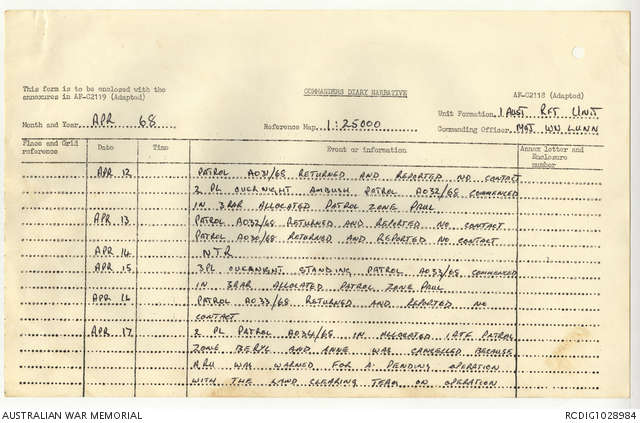 This form is to be enclosed with the
annexures in AF-C2119 (Adapted)
COMMANDERS DIARY NARRATIVE
AF-C2118 (Adapted)
Month and Year APR 68
Reference Map 1:25000
Unit Formation 1 AUST RFT UNIT
Commanding Officer MAJ WV LUNN
Place and Grid reference
Date
Time
Event or information
Annex letter and Enclosure number
APR 12 PATROL AO31/68 RETURNED AND REPORTED NO CONTACT
2 PL OVERNIGHT AMBUSH PATROL AO32/68 COMMENCED
IN 3RAR ALLOCATED PATROL ZONE PAUL
APR 13 PATROL AO32/68 RETURNED AND REPORTED NO CONTACT
PATROL AO30/68 RETURNED AND REPORTED NO CONTACT
APR 14 N.T.R
APR 15 3PL OVERNIGHT STANDING PATROL AO33/68 COMMENCED
IN 3RAR ALLOCATED PATROL ZONE PAUL
APR 16 PATROL AO33/68 RETURNED AND REPORTED NO
CONTACT
APR 17 2 PL PATROL AO34/68 IN ALLOCATED 1ATF PATROL
ZONE BERYL AND ANNE WAS CANCELLED BECAUSE
WAS WARNED FOR A PENDING OPERATION
WITH THE LAND CLEARING TEAM ON OPERATION
AUSTRALIAN WAR MEMORIAL
RCDIG1028984